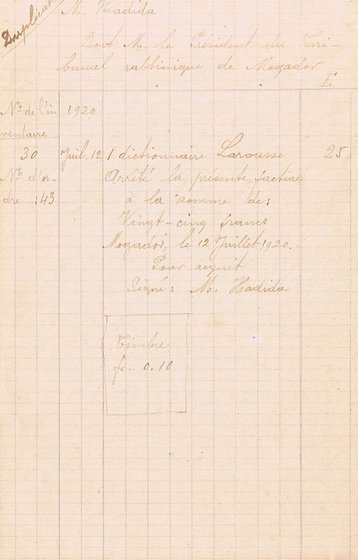 Duplicata
M. Hadida
Doit M. le Président du Tri-
bunal rabbinique de Mogador
F.
No de l'in
ventaire
1920
30 Juil. 12 1 dictionnaire Larousse 25
No d'or-
dre : 43
Arrêté la présente facture
à la somme de:
Vingt-cinq francs
Mogador, le 12 Juillet 1920.
Pour acquit
Signé: M. Hadida
Timbre
fr. 0.10